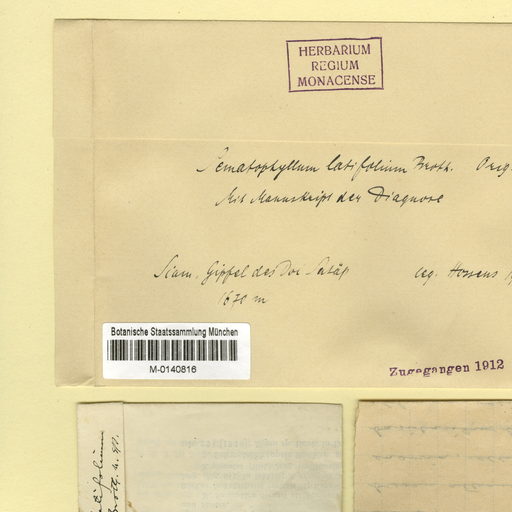 HERBARIUM
REGIUM
MONACENSE
Sematophyllum latifolium Broth. Orig.
Mit Manuskript der Diagnose
Siam, Gipfel des Doi Sutäp leg. Hosseus
1670 m
Botanische Staatssammlung München
M-0140816
Zugegangen 1912
latifolium
Broth. n. sp.